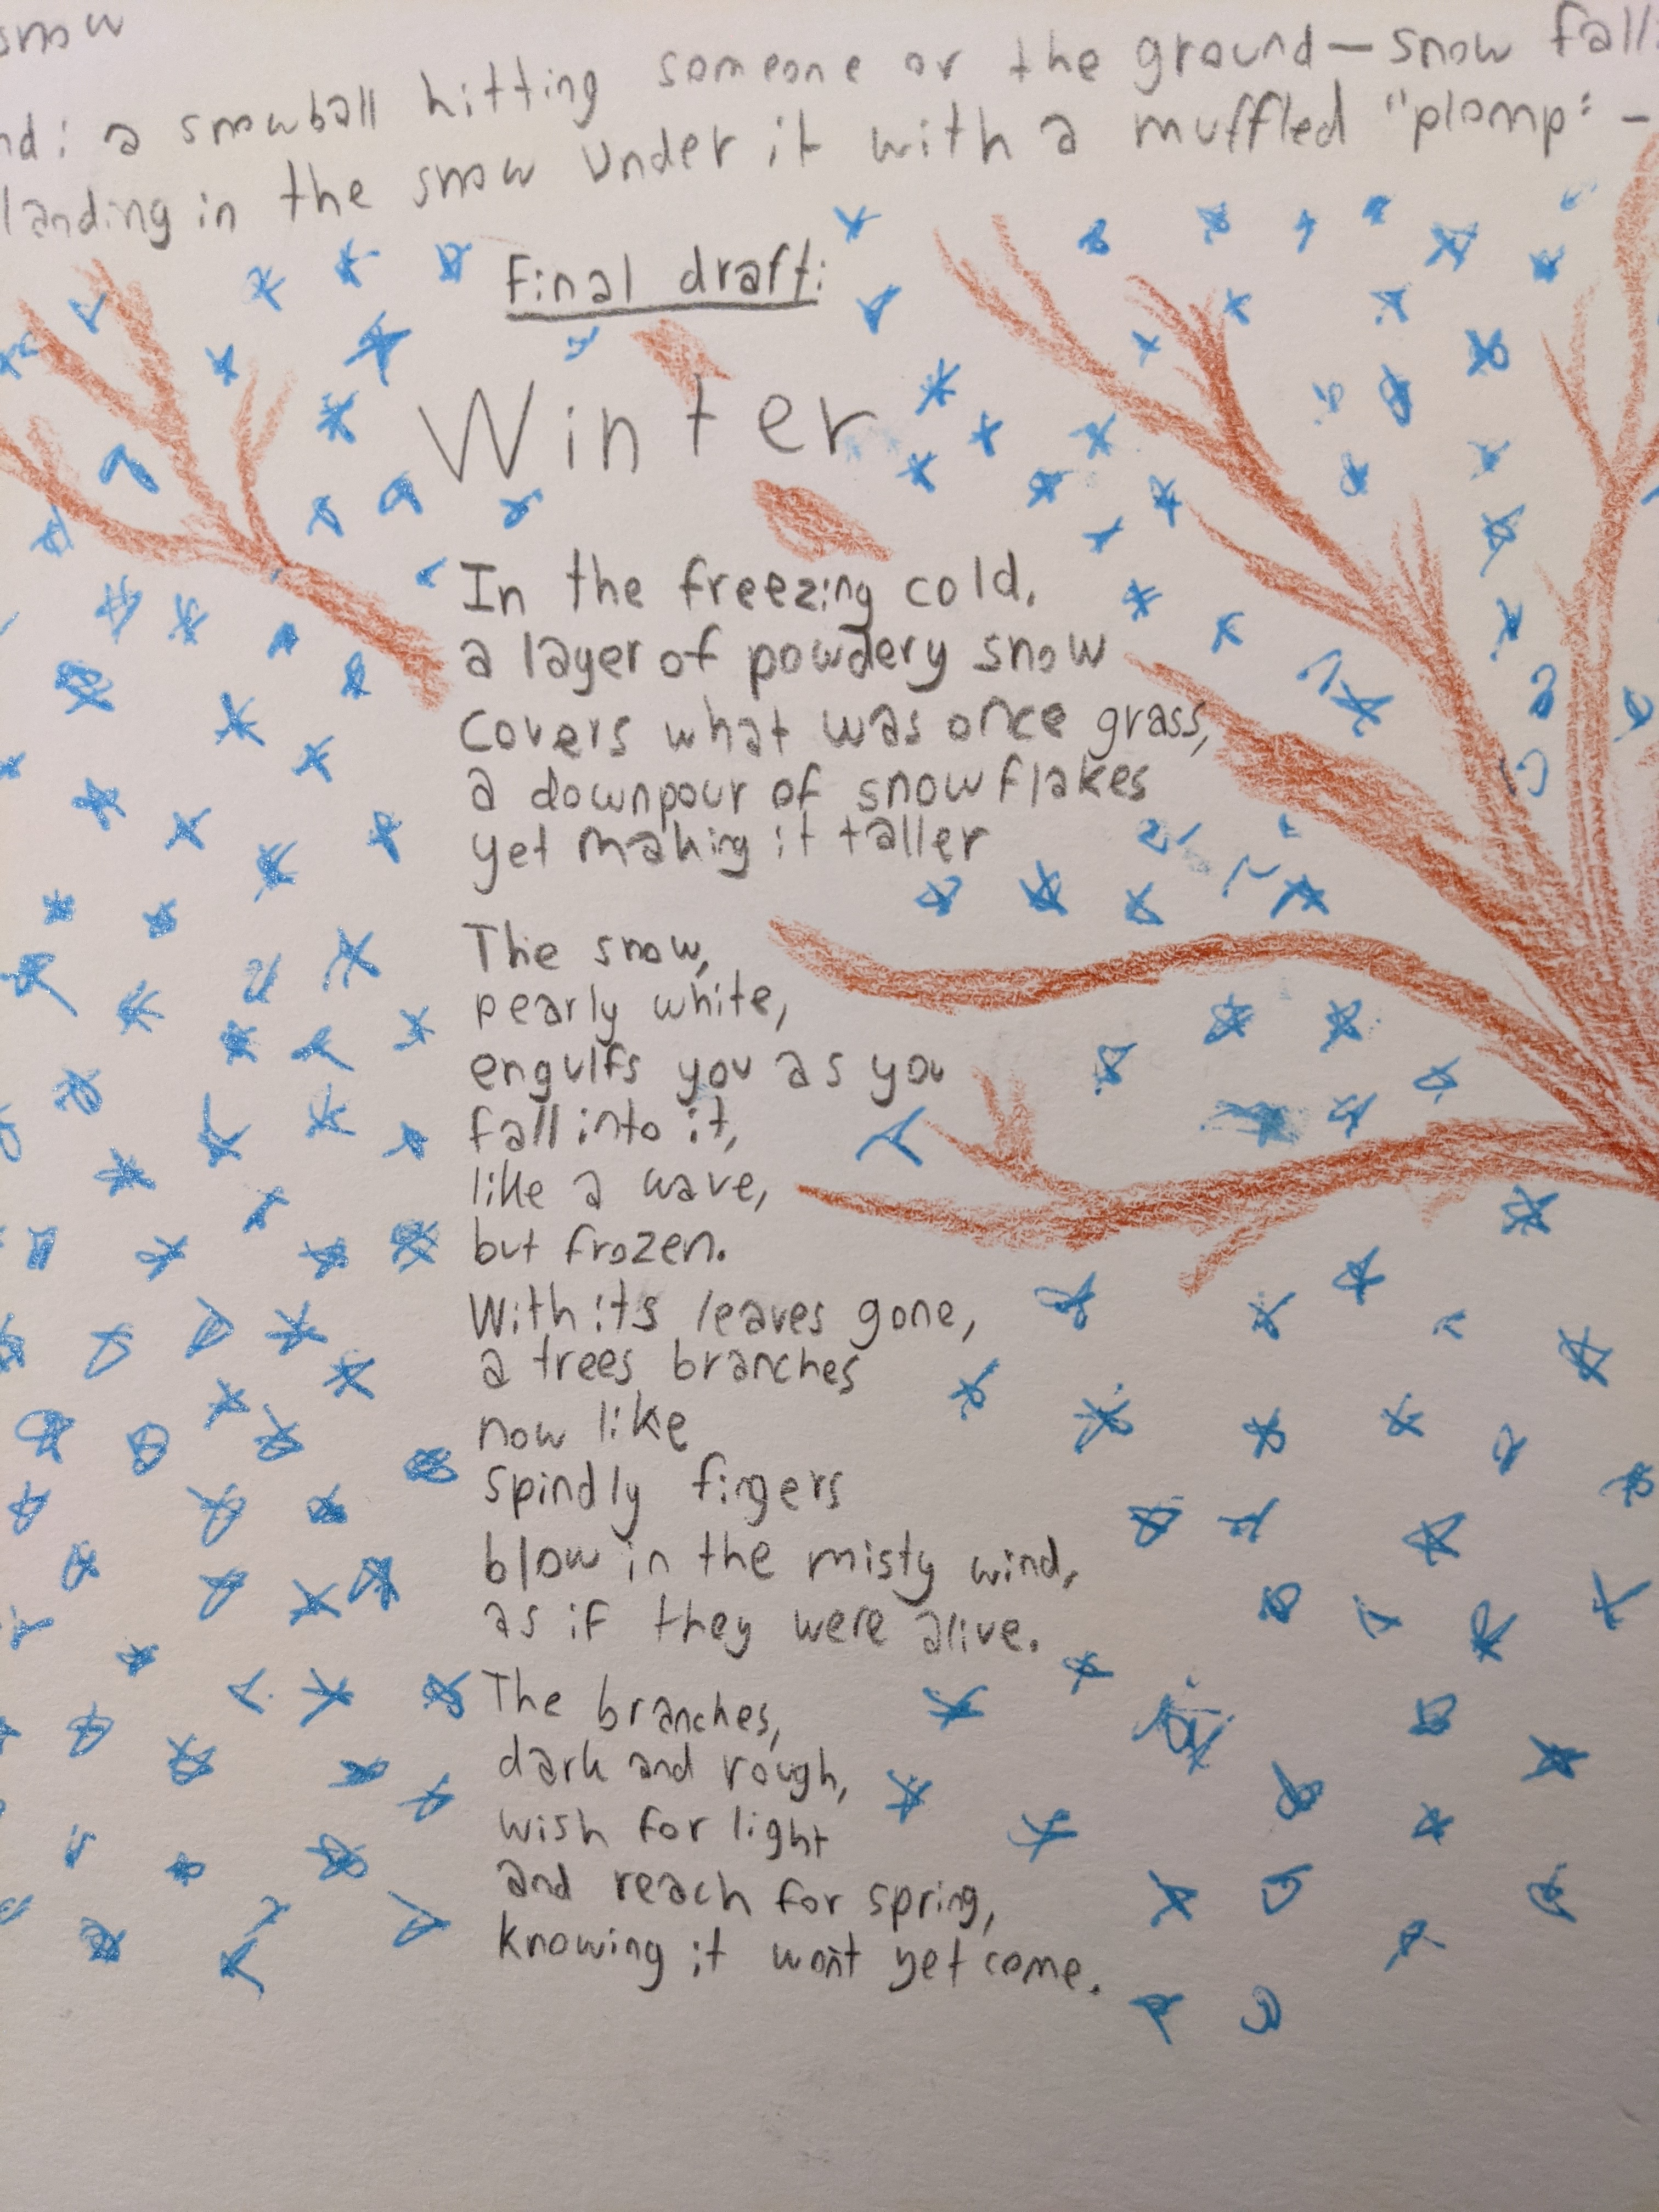 snow
nd: a snowball hitting someone or the ground — snow fall
landing in the snow under it with a muffled "plomp" -
Final draft:
Winter
In the freezing cold,
a layer of powdery snow
covers what was once grass,
a downpour of snowflakes
yet making it taller
The snow,
pearly white,
engulfs you as you
fall into it,
like a wave,
but frozen.
With its leaves gone,
a trees branches
now like
spindly fingers
blow in the misty wind,
as if they were alive.
The branches,
dark and rough,
wish for light
and reach for spring,
knowing it won't yet come.